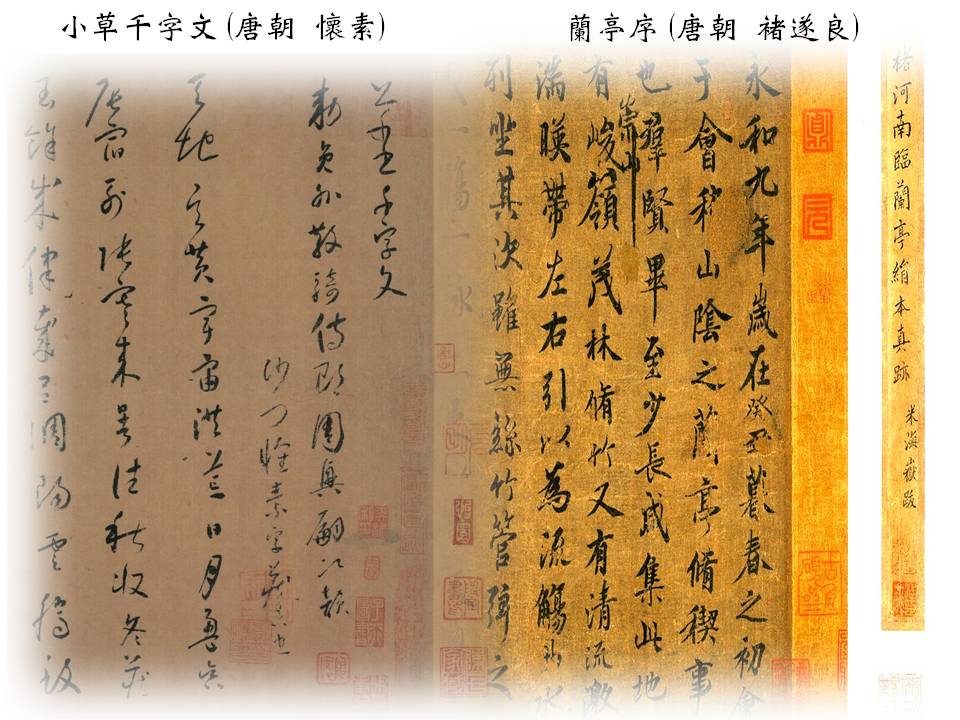 小草千字文(唐朝 懷素)
蘭亭序(唐朝 褚遂良)
褚河南臨蘭亭絹本真跡
米海嶽跋
永和九年歲在癸丑暮春之初會
于會稽山陰之蘭亭脩稧事
也羣賢畢至少長咸集此地
有崇山峻嶺茂林脩竹又有清流激
湍暎帶左右引以為流觴曲水
列坐其次雖無絲竹管弦之
千字文
勅員外散騎侍郎周興嗣次韻
沙門懷素字藏真也
天地玄黃宇宙洪荒日月盈昃
辰宿列張寒來暑往秋收冬藏
閏餘成律歲呂調陽雲騰致